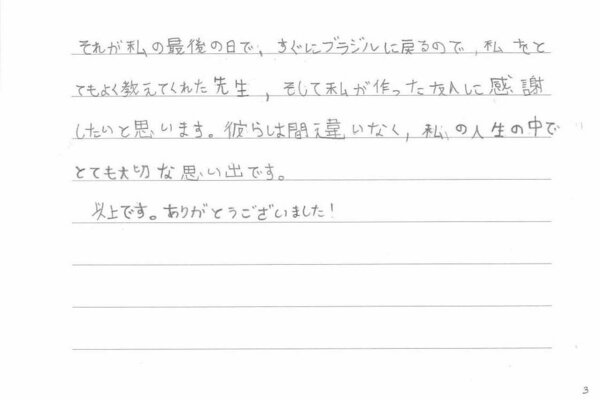 それが私の最後の日で、すぐにブラジルに戻るので、私をと
てもよく教えてくれた先生，そして私が作った友人に感謝
したいと思います。彼らは間違いなく，私の人生の中で
とても大切な思い出です。
以上です。ありがとうございました！
3